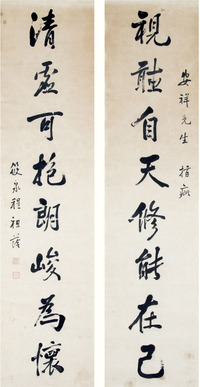 安祥先生 指疵
視聽自天修能在己
清虛可挹朗峻為懷
筱泉程祖